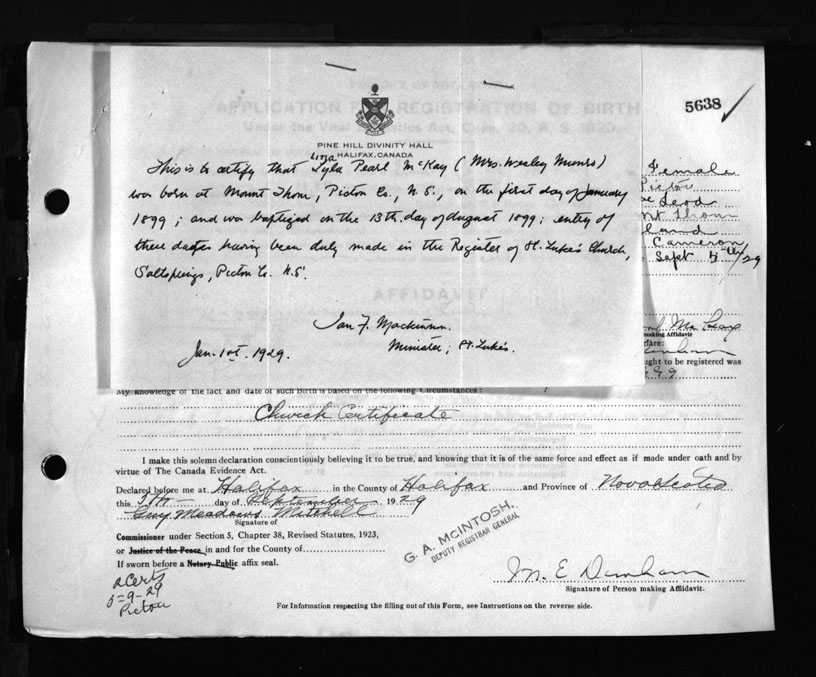 5638
APPLICATION FOR REGISTRATION OF BIRTH
PINE HILL DIVINITY HALL
HALIFAX, CANADA
Liza
This is to certify that Lyla Pearl McKay (Mrs. Wesley Munro)
was born at Mount Thom, Pictou Co., N.S., on the first day of January
1899; and was baptized on the 13th. day of August 1899; entry of
these dates having been duly made in the Register of St. Luke's Church,
Saltsprings, Pictou Co. N.S.
Ian F. Mackinnon.
Minister, St. Luke's.
Jan. 1st. 1929.
Female
Pictou
Leod
nt Thom
land
Cameron
Sept 5th/29
making Affidavit
lare:
ught to be registered was
AFFIDAVIT
My knowledge of the fact and date of such Birth is based on the following Circumstances:
Church Certificate
I make this solemn declaration conscientiously believing it to be true, and knowing that it is of the same force and effect as if made under oath and by
virtue of The Canada Evidence Act.
Declared before me at Halifax in the County of Halifax and Province of Nova Scotia
this 5th day of September 1929
Guy Meadows Mitchell
Signature of
Commissioner under Section 5, Chapter 38, Revised Statutes, 1923,
or Justice of the Peace in and for the County of
If sworn before a Notary Public affix seal.
G. A. McINTOSH,
DEPUTY REGISTRAR GENERAL
M. E. Dunham
Signature of Person making Affidavit.
2 Certs
5-9-29
Pictou
For Information respecting the filling out of this Form, see Instructions on the reverse side.